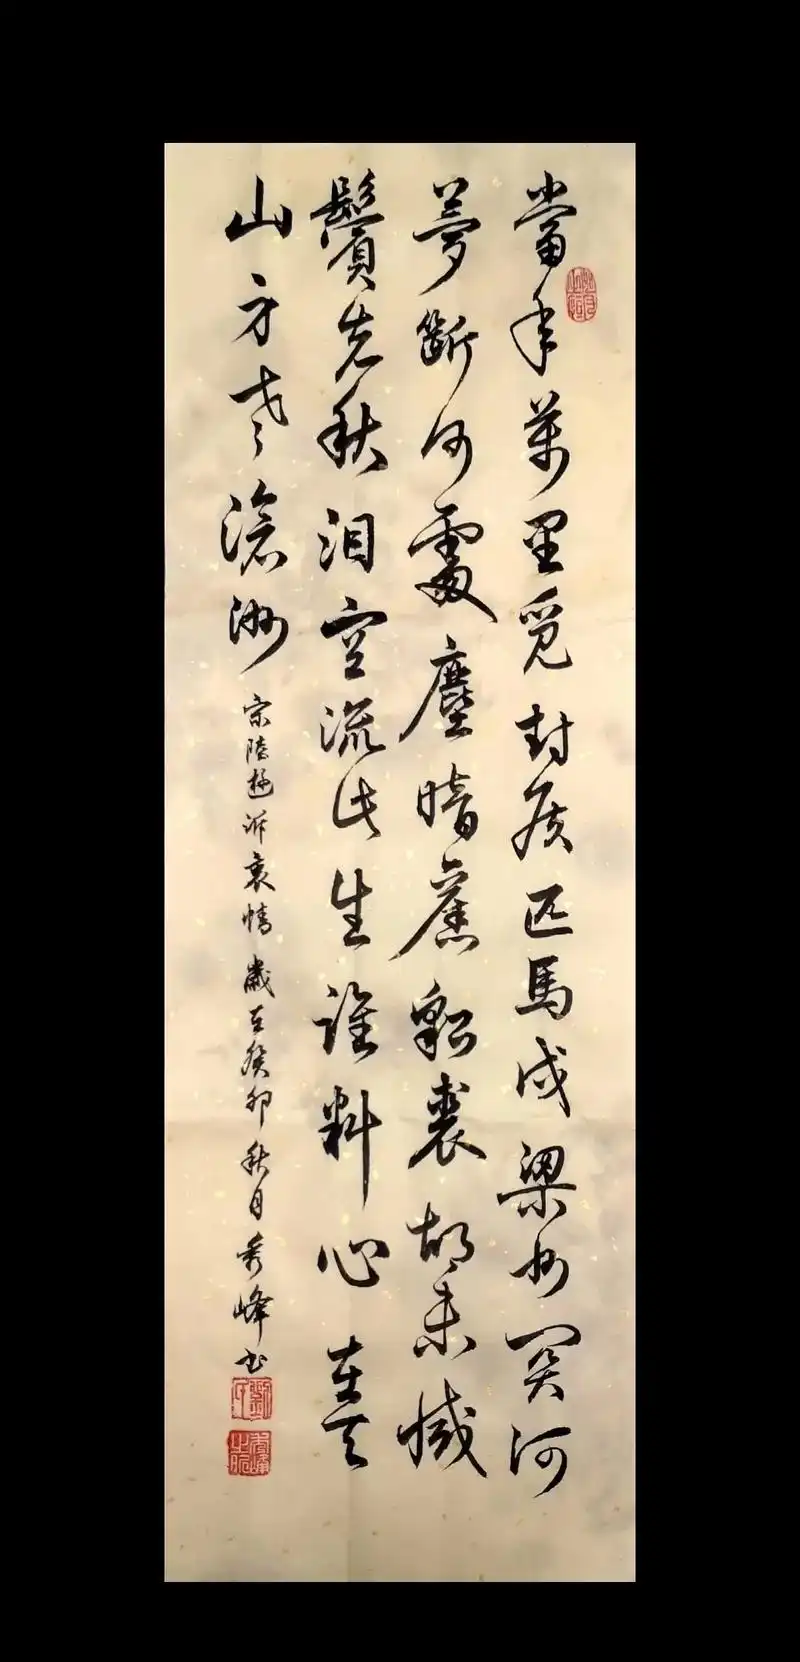 當年萬里覓封侯匹馬戍梁州関河
夢斷何處塵暗舊貂裘胡未滅
鬢先秋泪空流此生誰料心在天
山身老滄洲 宋陸游訴衷情 歲在癸卯秋月秀峰书